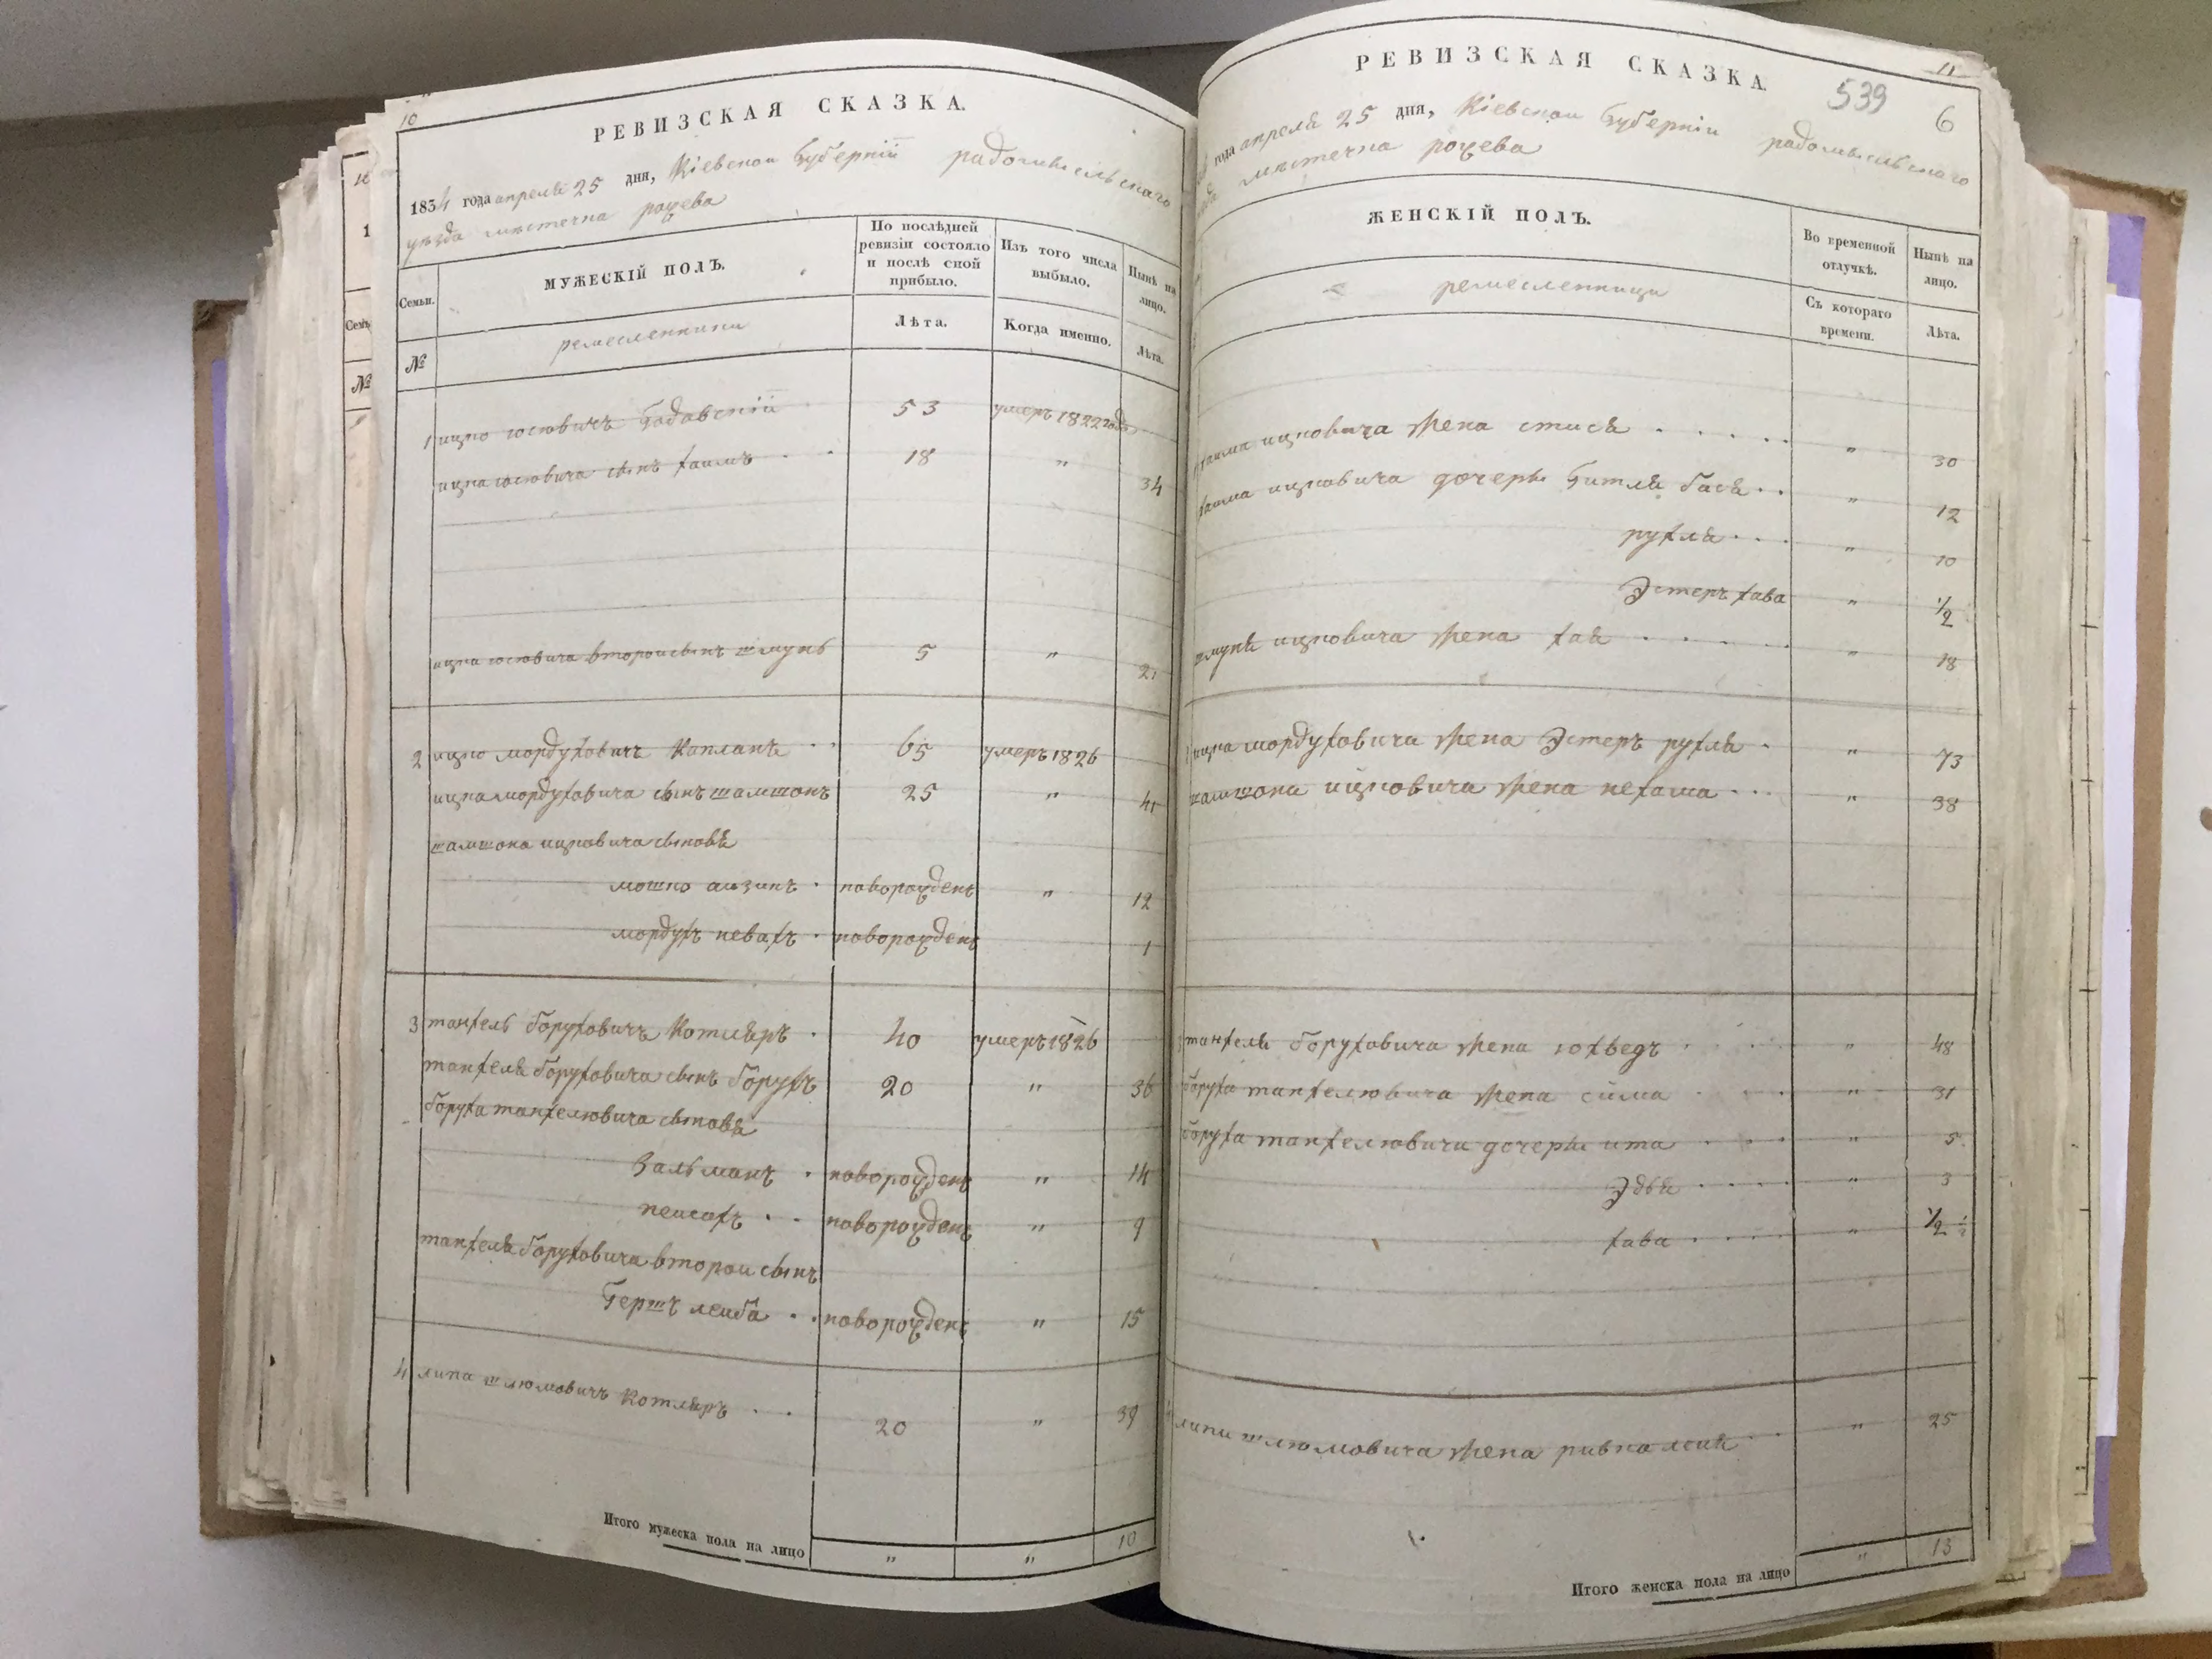 10
РЕВИЗСКАЯ СКАЗКА.
1834 года апреля 25 дня, Кіевскои Губерніи радомысльскаго
уезда местечка рожева
Семьи.
МУЖЕСКІЙ ПОЛЪ.
По послѣдней ревизіи состояло и послѣ оной прибыло.
Изъ того числа выбыло.
Нынѣ на лицо.
№
ремесленники
Лѣта.
Когда именно.
Лѣта.
1 ицко иосювичъ 53 умеръ 1822 года
ицка иосювича сынъ хаимъ 18 " 34
ицка иосювича второи сынъ шмунь 5 " 21
2 ицко мордуховичъ Капланъ 65 умеръ 1826
ицка мордуховича сынъ шамшонъ 25 " 41
шамшона ицковича сыновя
мошко аизикъ новорожденъ " 12
мордухъ новорожденъ 1
3 танхель боруховичъ Котляръ 40 умеръ 1826
танхеля боруховича сынъ борухъ 20 " 36
боруха танхелювича сыновя
Зальманъ новорожденъ " 14
пеисахъ новорожденъ " 9
танхеля боруховича второи сынъ
Гершъ леиба новорожденъ " 15
4 липа шлюмовичъ Котляръ 20 " 39
Итого мужеска пола на лицо " " 10
11
539
6
РЕВИЗСКАЯ СКАЗКА.
года апреля 25 дня, Кіевскои Губерніи радомысльскаго
местечка рожева
ЖЕНСКІЙ ПОЛЪ.
Во временной отлучкѣ.
Нынѣ на лицо.
ремесленници
Съ котораго времени.
Лѣта.
хаима ицковича жена стися " 30
хаима ицковича дочери Гитля бася " 12
рухля " 10
Эстеръ хава " 1/2
шмуня ицковича жена хая " 18
ицка мордуховича жена Эстеръ рухля " 73
шамшона ицковича жена нехама " 38
танхеля боруховича жена юхведъ " 48
боруха танхелювича жена сима " 31
боруха танхелювича дочери ита " 5
Эдя " 3
хава " 1/2
липи шлюмовича жена ривка лея " 25
Итого женска пола на лицо " 13